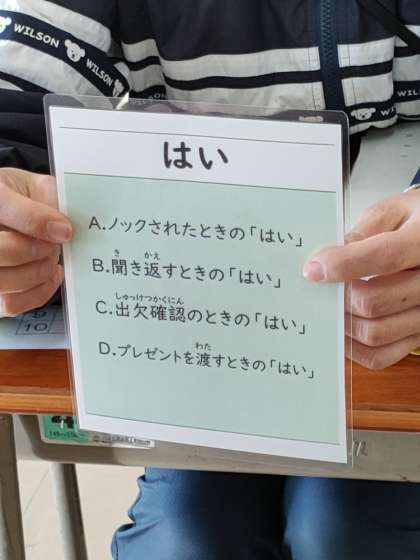 WILSON
WILSON
はい
A.ノックされたときの「はい」
B.聞き返すときの「はい」
き かえ
C.出欠確認のときの「はい」
しゅっけつかくにん
D.プレゼントを渡すときの「はい」
わた
9
10